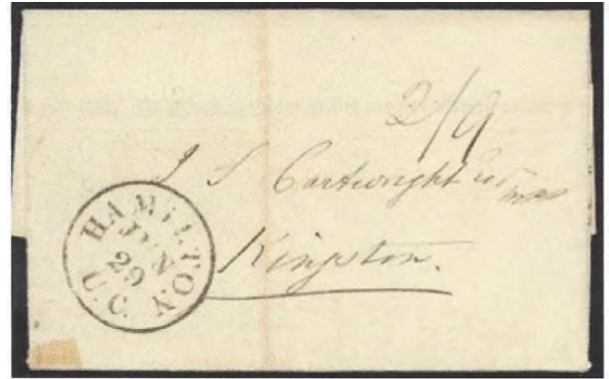 2/9
J S Cartwright Esq
Kingston.
HAMILTON
JUN
29
U.C.